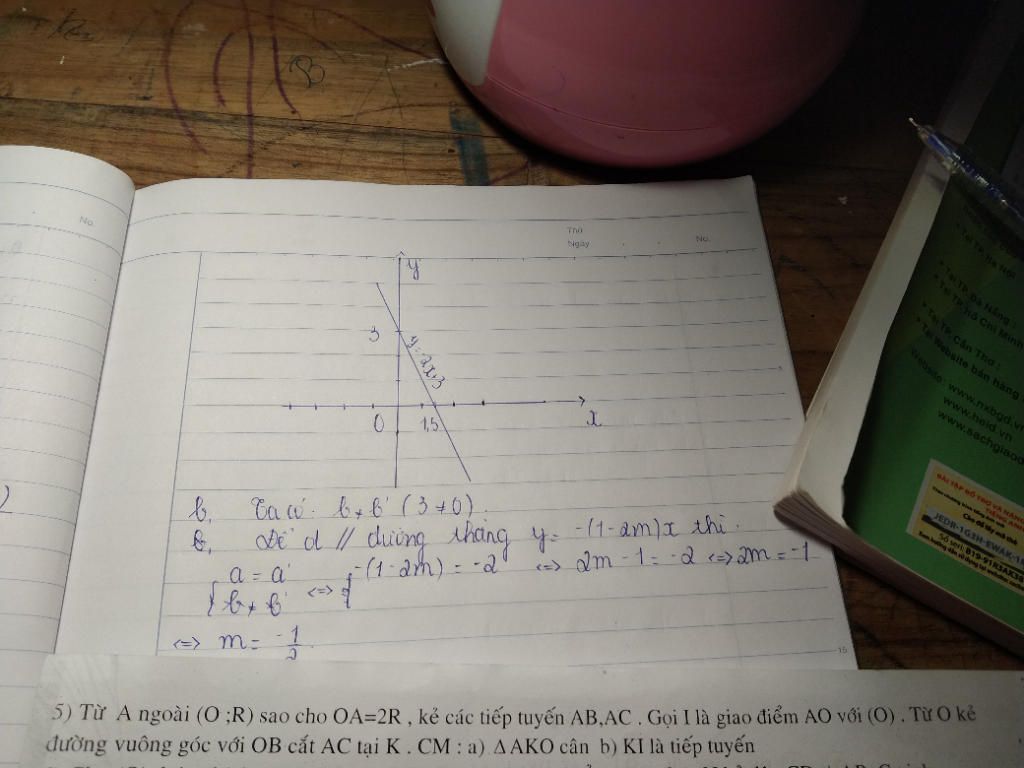 No.
Thứ
Ngày
No.
y
3
y=-2x+3
0
1,5
x
b, Ta có: b ≠ b' (3 ≠ 0).
b, Để d // đường thẳng y= -(1-2m)x thì
{ a = a' <=> { -(1-2m) = -2 <=> 2m - 1 = -2 <=> 2m = -1
b ≠ b'
<=> m = -1/2
15
5) Từ A ngoài (O ;R) sao cho OA=2R , kẻ các tiếp tuyến AB,AC . Gọi I là giao điểm AO với (O) . Từ O kẻ
đường vuông góc với OB cắt AC tại K . CM : a) Δ AKO cân b) KI là tiếp tuyến
• Tại TP. Đà Nẵng :
• Tại TP. Hồ Chí Minh
• Tại TP. Cần Thơ :
• Tại Website bán hàng
Website: www.nxbgd.vn
www.heid.vn
www.sachgiaod
BÀI TẬP BỔ TRỢ VÀ NÂNG
TIẾNG ANH